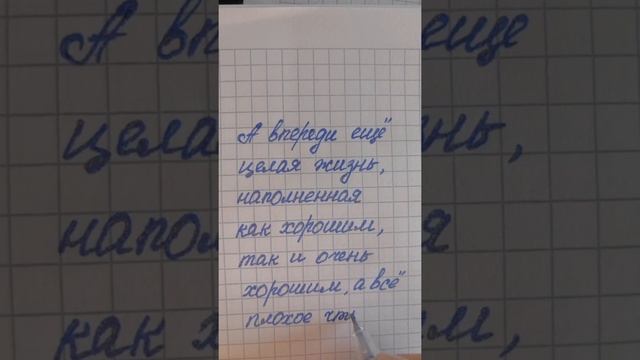 А впереди ещё
целая жизнь,
наполненная
как хорошим,
так и очень
хорошим, а всё
плохое